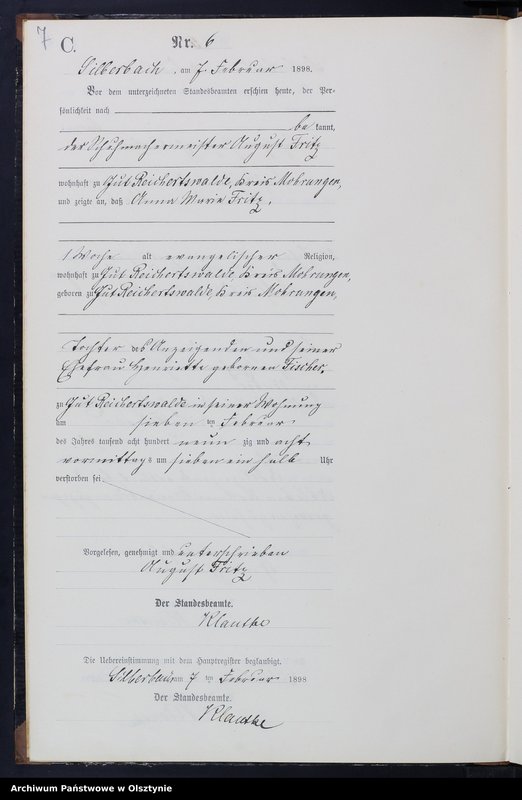 7
C.
Nr. 6
Silberbach, am 7. Februar 1898.
Vor dem unterzeichneten Standesbeamten erschien heute, der Per-
sönlichkeit nach
be kannt,
der Schuhmachermeister August Fritz
wohnhaft zu Gut Reichertswalde, Kreis Mohrungen,
und zeigte an, daß Anna Marie Fritz,
1 Woche alt evangelischer Religion,
wohnhaft zu Gut Reichertswalde, Kreis Mohrungen,
geboren zu Gut Reichertswalde, Kreis Mohrungen,
Tochter des Anzeigenden und seiner
Ehefrau Henriette geborenen Fischer,
zu Gut Reichertswalde in seiner Wohnung
am sieben ten Februar
des Jahres tausend acht hundert neun zig und acht
vormittags um sieben ein halb Uhr
verstorben sei.
Vorgelesen, genehmigt und unterschrieben
August Fritz
Der Standesbeamte.
Klautke
Die Uebereinstimmung mit dem Hauptregister beglaubigt.
Silberbach am 7 ten Februar 1898
Der Standesbeamte.
Klautke
Archiwum Państwowe w Olsztynie